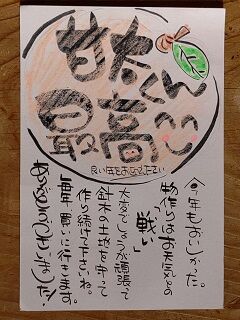 甘太くん
最高っ!
良いお年をおむかえ下さい
今年もおいしかった。
物作りはお天気との
「戦い」
大変でしょうが頑張って
鉾田の土地を守って
作り続けて下さいね。
毎年買いに行きます。
ありがとうございました!